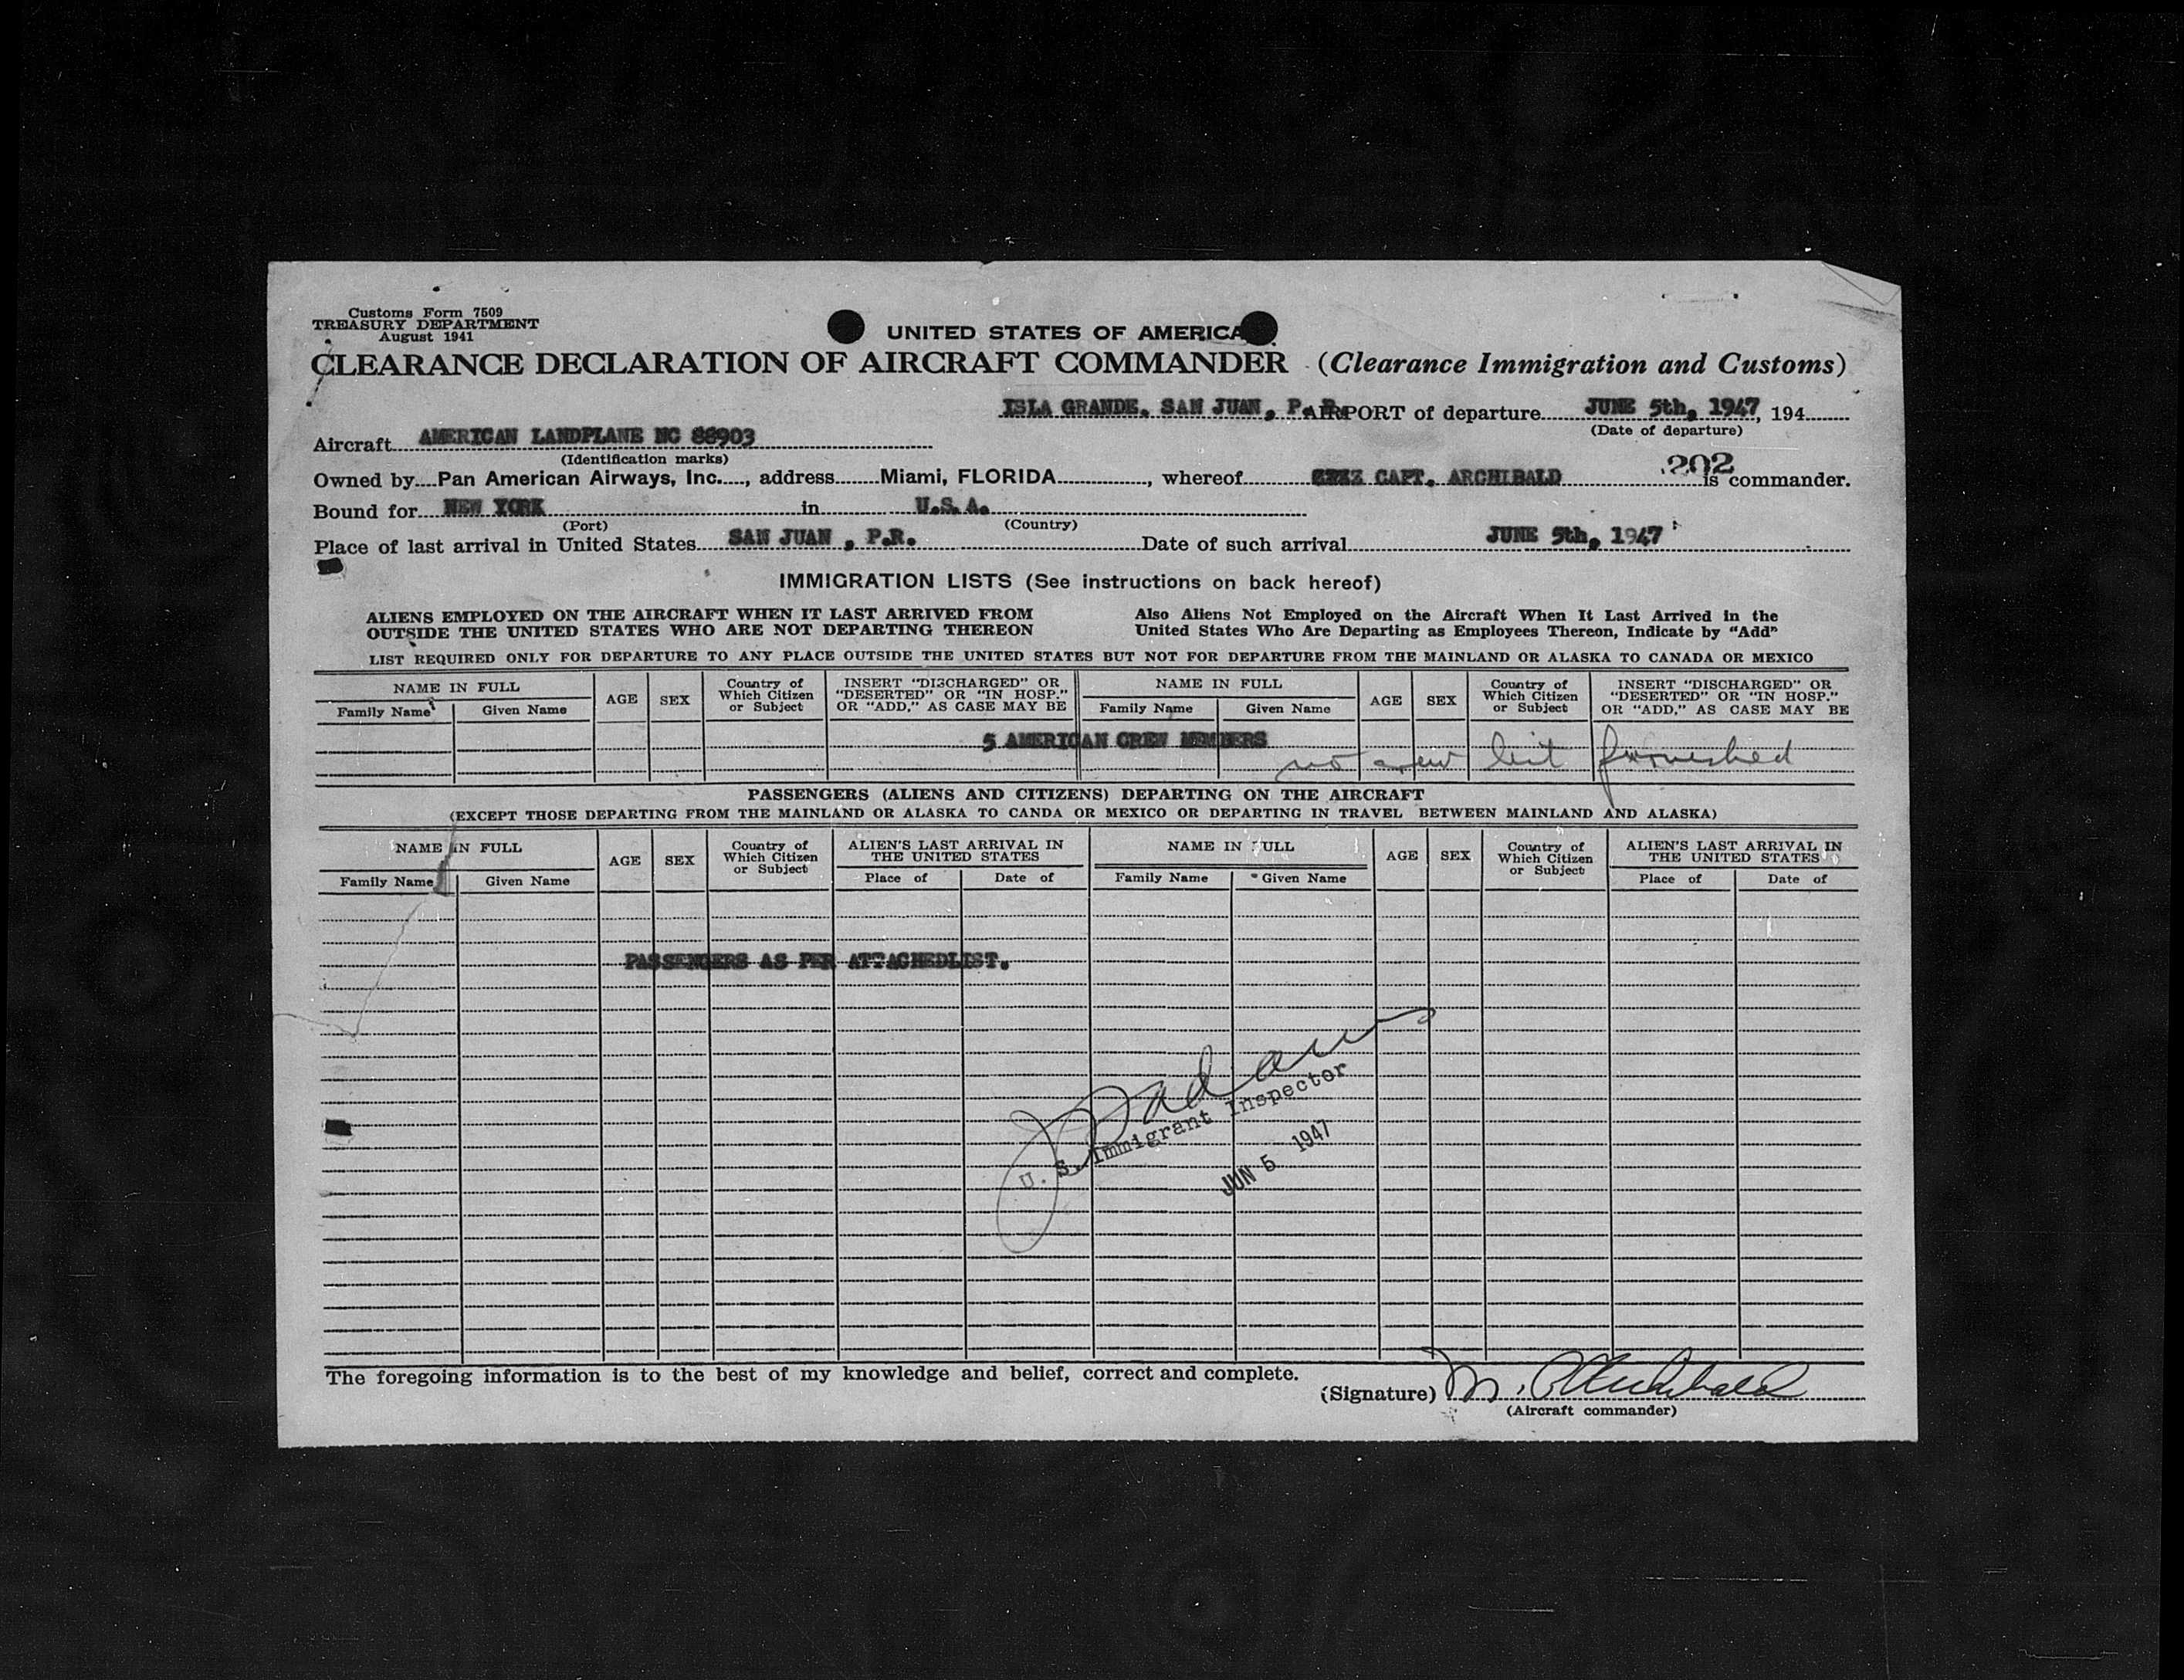 Customs Form 7509
TREASURY DEPARTMENT
August 1941
UNITED STATES OF AMERICA
CLEARANCE DECLARATION OF AIRCRAFT COMMANDER (Clearance Immigration and Customs)
ISLA GRANDE, SAN JUAN, P.R. AIRPORT of departure JUNE 5th, 1947, 194
(Date of departure)
Aircraft AMERICAN LANDPLANE NC 88903
(Identification marks)
202
Owned by Pan American Airways, Inc., address Miami, FLORIDA, whereof CAPT. ARCHIBALD is commander.
Bound for NEW YORK in U.S.A.
(Port) (Country)
Place of last arrival in United States SAN JUAN, P.R. Date of such arrival JUNE 5th, 1947
IMMIGRATION LISTS (See instructions on back hereof)
ALIENS EMPLOYED ON THE AIRCRAFT WHEN IT LAST ARRIVED FROM
OUTSIDE THE UNITED STATES WHO ARE NOT DEPARTING THEREON
Also Aliens Not Employed on the Aircraft When It Last Arrived in the
United States Who Are Departing as Employees Thereon, Indicate by "Add"
LIST REQUIRED ONLY FOR DEPARTURE TO ANY PLACE OUTSIDE THE UNITED STATES BUT NOT FOR DEPARTURE FROM THE MAINLAND OR ALASKA TO CANADA OR MEXICO
NAME IN FULL
Family Name Given Name
AGE
SEX
Country of
Which Citizen
or Subject
INSERT "DISCHARGED" OR
"DESERTED" OR "IN HOSP."
OR "ADD," AS CASE MAY BE
NAME IN FULL
Family Name Given Name
AGE
SEX
Country of
Which Citizen
or Subject
INSERT "DISCHARGED" OR
"DESERTED" OR "IN HOSP."
OR "ADD," AS CASE MAY BE
5 AMERICAN CREW MEMBERS
no crew list furnished
PASSENGERS (ALIENS AND CITIZENS) DEPARTING ON THE AIRCRAFT
(EXCEPT THOSE DEPARTING FROM THE MAINLAND OR ALASKA TO CANDA OR MEXICO OR DEPARTING IN TRAVEL BETWEEN MAINLAND AND ALASKA)
NAME IN FULL
Family Name Given Name
AGE
SEX
Country of
Which Citizen
or Subject
ALIEN'S LAST ARRIVAL IN
THE UNITED STATES
Place of Date of
NAME IN FULL
Family Name Given Name
AGE
SEX
Country of
Which Citizen
or Subject
ALIEN'S LAST ARRIVAL IN
THE UNITED STATES
Place of Date of
PASSENGERS AS PER ATTACHEDLIST.
U. S. Immigrant Inspector
JUN 5 1947
The foregoing information is to the best of my knowledge and belief, correct and complete.
(Signature) M. Archibald
(Aircraft commander)